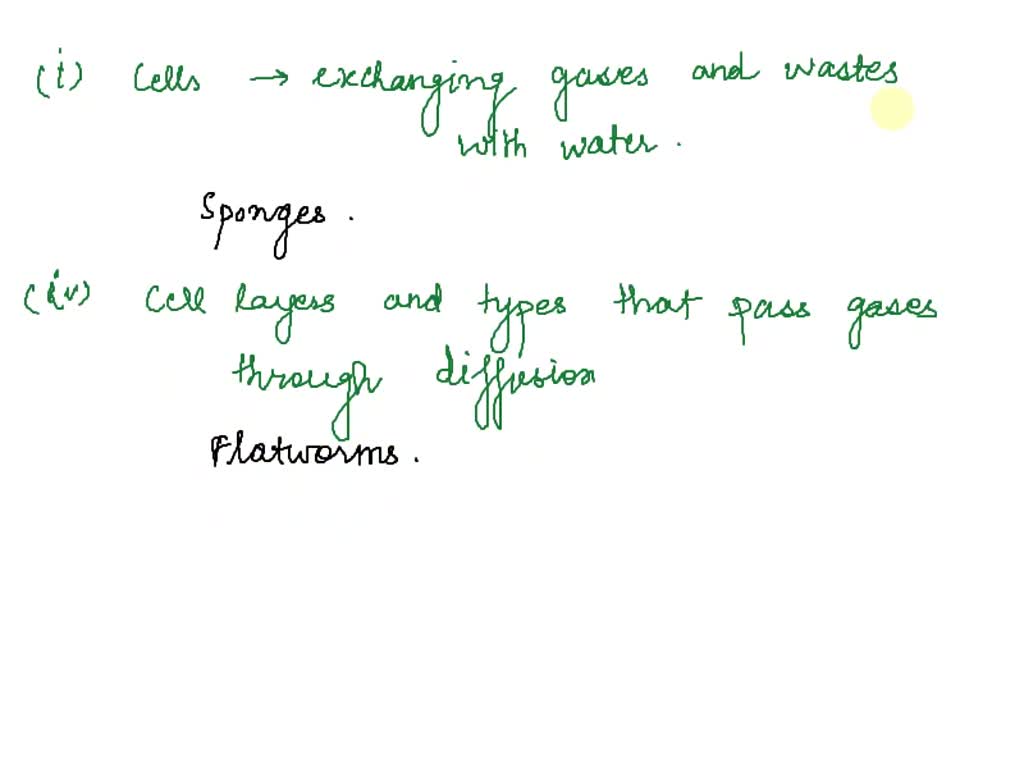 (i) Cells → exchanging gases and wastes
with water.
Sponges.
(iv) Cell layers and types that pass gases
through diffusion
Flatworms.